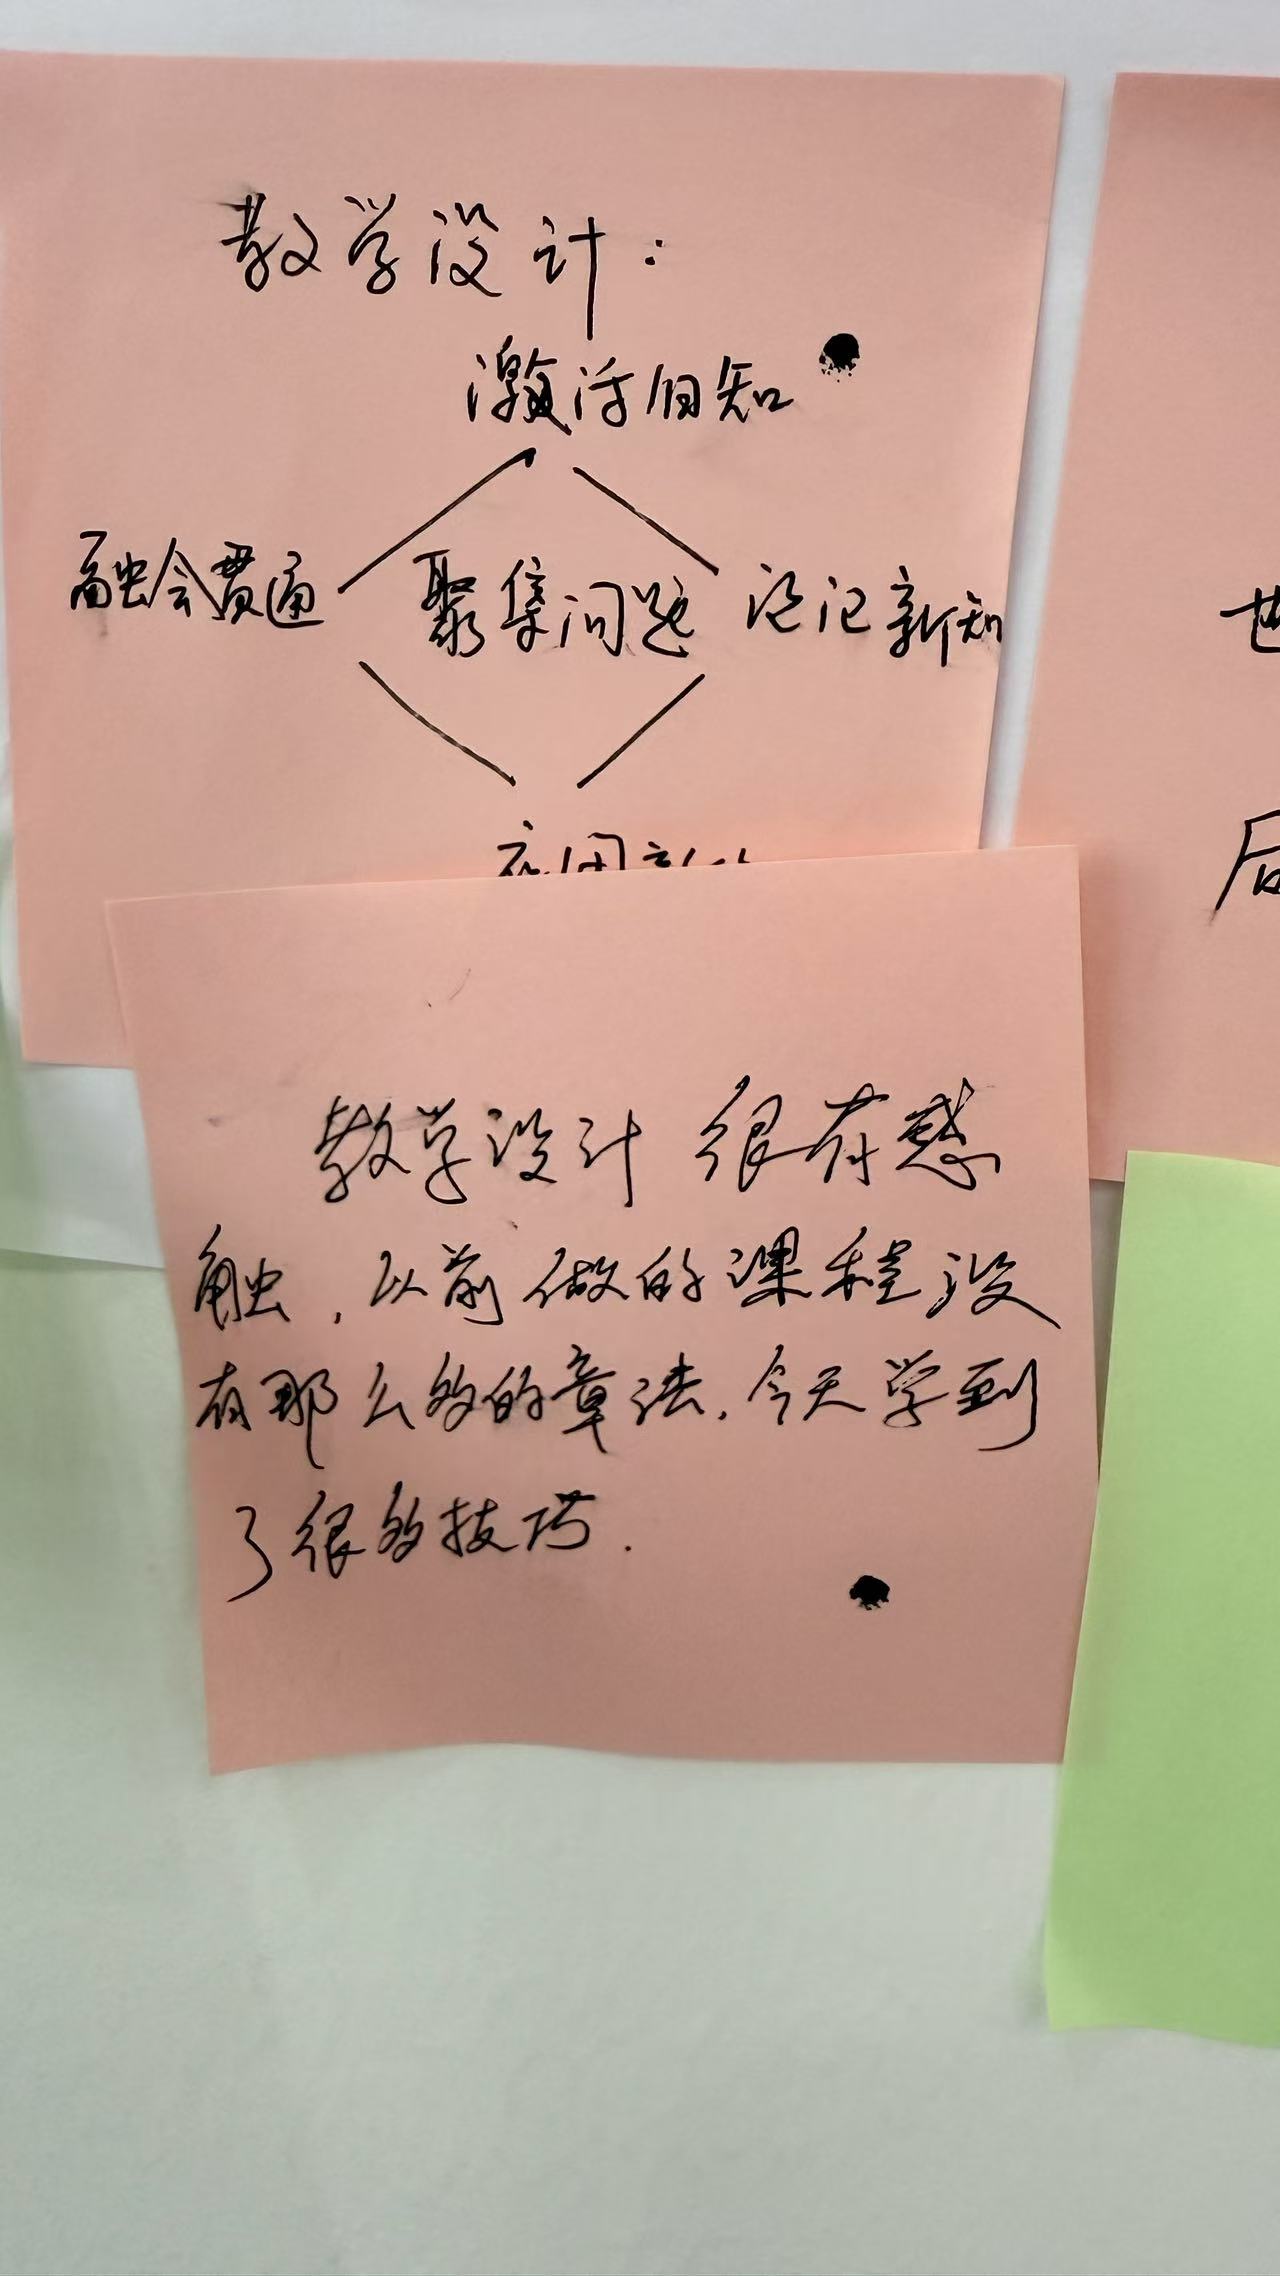 教学设计：
激活旧知
融会贯通 聚集问题 论记新知
应用新知
世
后
教学设计 很有感
触，以前做的课程没
有那么多的章法，今天学到
了很多技巧．